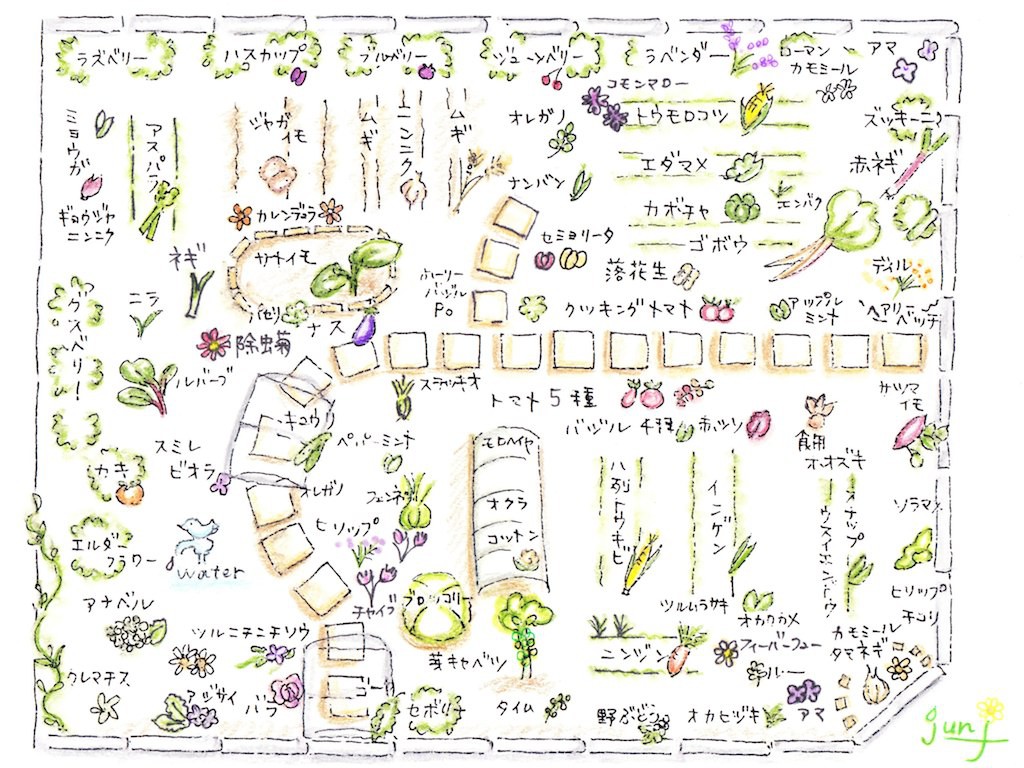 ラズベリー
ハスカップ
ブルベリー
ジューンベリー
ラベンダー
ローマン
カモミール
アマ
コモンマロー
ミョウガ
アスパラ
ジャガ
イモ
ムギ
ニンニク
ムギ
オレガノ
トウモロコシ
ズッキーニ
エダマメ
赤ネギ
ナンバン
カボチャ
エンバク
ギョウジャ
ニンニク
カレンデュラ
セミョリータ
ゴボウ
ネギ
サトイモ
ホーリー
バジル
Po
落花生
ディル
ニラ
パセリ
ナス
クッキングトマト
アップル
ミント
ヘアリー
ベッチ
除虫菊
ルバーブ
キュウリ
ペパーミント
トマト5種
バジル4種
ホッツリ
食用
ホオズキ
サツマ
イモ
スミレ
ビオラ
カキ
モロヘイヤ
オレガノ
フェンネル
オクラ
コットン
八列トウキビ
インゲン
オナップ
ウスイエンドウ
ソラマメ
ヒソップ
エルダー
フラワー
water
チャイブ
ブロッコリー
ツルムラサキ
オカワカメ
ヒソップ
チコリ
アナベル
ツルニチニチソウ
芽キャベツ
ニンジン
フィーバーフュー
カモミール
タマネギ
クレマチス
アジサイ
バラ
ゴーヤ
セボリー
タイム
野ぶどう
オカヒジキ
ルー
アマ
junj